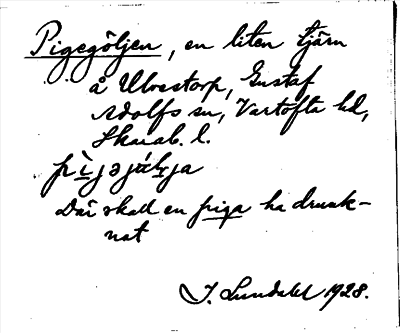 Pigegöljen, en liten tjärn
å Ulvestorp, Gustaf
Adolfs sn, Vartofta hd,
Skarab. l.
Där skall en piga ha drunk-
nat
J. Lundahl 1928.